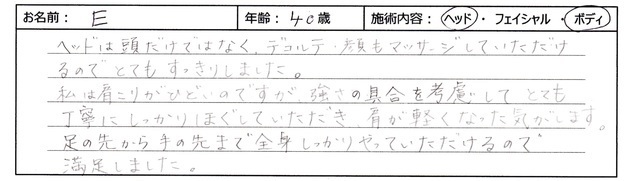 お名前： E 年齢：40歳 施術内容：ヘッド・フェイシャル・ボディ
ヘッドは頭だけではなく、デコルテ・顔もマッサージしていただけ
るのでとてもすっきりしました。
私は肩こりがひどいのですが、強さの具合を考慮してとても
丁寧にしっかりほぐしていただき、肩が軽くなった気がします。
足の先から手の先まで全身しっかりやっていただけるので
満足しました。